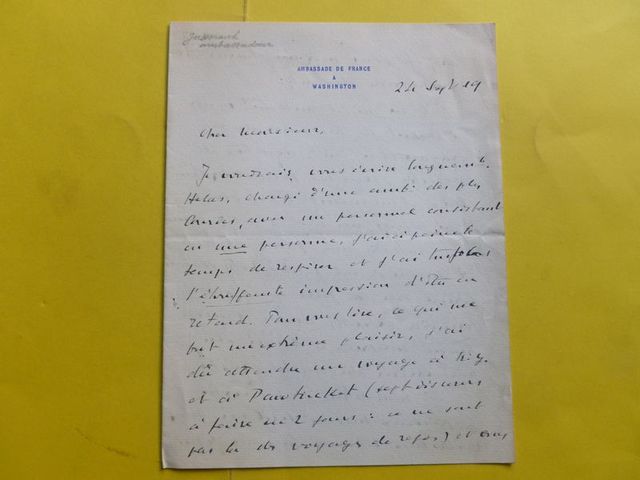 Jusserand
ambassadeur
AMBASSADE DE FRANCE
A
WASHINGTON
24 Sept 19
Cher Monsieur,
Je voudrais vous écrire longuemt.
Helas, chargé d'une des plus
lourdes, avec un personnel consistant
en une personne, j'ai à peine le
temps de respirer et j'ai toujours
l'étouffante impression d'être en
retard. Pour vous lire, ce qui me
fait un extrême plaisir, j'ai
dû attendre un voyage à N.Y.
et à Pawtucket (sept discours
à faire en 2 jours : ce ne sont
pas là des voyages de repos) et